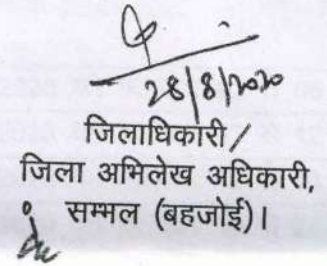 28/8/2020
जिलाधिकारी /
जिला अभिलेख अधिकारी,
सम्भल (बहजोई)।